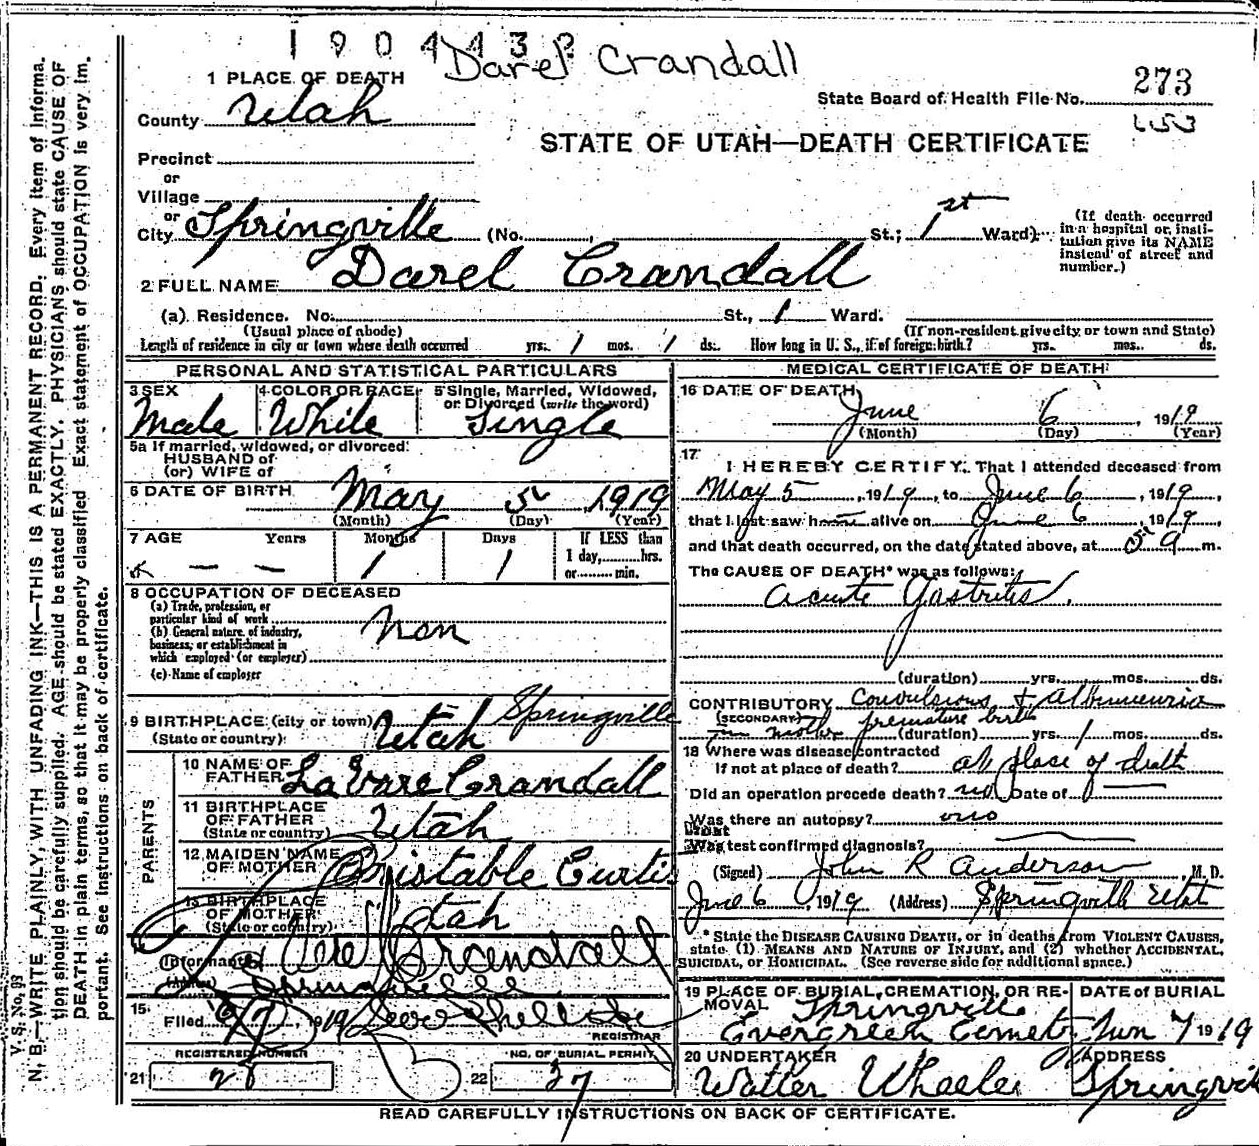 1904432 Darel Crandall
273
State Board of Health File No.
653
STATE OF UTAH—DEATH CERTIFICATE
1 PLACE OF DEATH
County Utah
Precinct
or
Village
or
City Springville (No. , St.; 1st Ward)
(If death occurred
in a hospital or insti-
tution give its NAME
instead of street and
number.)
2 FULL NAME Darel Crandall
(a) Residence. No. St., 1 Ward.
(Usual place of abode) (If non-resident give city or town and State)
Length of residence in city or town where death occurred yrs. 1 mos. 1 ds. How long in U. S., if of foreign birth? yrs. mos. ds.
PERSONAL AND STATISTICAL PARTICULARS
3 SEX 4 COLOR OR RACE 5 Single, Married, Widowed,
or Divorced (write the word)
Male White Single
5a If married, widowed, or divorced
HUSBAND of
(or) WIFE of
6 DATE OF BIRTH May 5 1919
(Month) (Day) (Year)
7 AGE Years Months Days If LESS than
1 day, hrs.
or min.
— — 1 1
8 OCCUPATION OF DECEASED
(a) Trade, profession, or
particular kind of work
(b) General nature of industry,
business, or establishment in
which employed (or employer)
non
(c) Name of employer
9 BIRTHPLACE (city or town) Springville
(State or country) Utah
PARENTS
10 NAME OF
FATHER LaVare Crandall
11 BIRTHPLACE
OF FATHER
(State or country) Utah
12 MAIDEN NAME
OF MOTHER Christable Curtis
13 BIRTHPLACE
OF MOTHER
(State or country) Utah
14
(Informant) Crandall
(Address) Springville
15
Filed 6/7, 1919
REGISTRAR
REGISTERED NUMBER NO. OF BURIAL PERMIT
21 28 22 37
MEDICAL CERTIFICATE OF DEATH
16 DATE OF DEATH
June 6, 1919
(Month) (Day) (Year)
17
I HEREBY CERTIFY, That I attended deceased from
May 5, 1919, to June 6, 1919,
that I last saw h alive on June 6, 1919
and that death occurred, on the date stated above, at 5 a m.
The CAUSE OF DEATH* was as follows:
acute Gastritis.
(duration) yrs. mos. ds.
CONTRIBUTORY convulsions + Albumenuria
(SECONDARY) in mother premature birth
(duration) yrs. 1 mos. ds.
18 Where was disease contracted
If not at place of death? at place of death
Did an operation precede death? no Date of
Was there an autopsy? no
What test confirmed diagnosis?
(Signed) John R Anderson, M. D.
June 6, 1919 (Address) Springville Utah
* State the DISEASE CAUSING DEATH, or in deaths from VIOLENT CAUSES,
state (1) MEANS AND NATURE OF INJURY, and (2) whether ACCIDENTAL,
SUICIDAL, or HOMICIDAL. (See reverse side for additional space.)
19 PLACE OF BURIAL, CREMATION, OR RE-
MOVAL Springville
Evergreen Cemetry
DATE of BURIAL
Jun 7 1919
20 UNDERTAKER
Walter Wheeler
ADDRESS
Springville
READ CAREFULLY INSTRUCTIONS ON BACK OF CERTIFICATE.
V. S. No. 98
N. B.—WRITE PLAINLY, WITH UNFADING INK—THIS IS A PERMANENT RECORD. Every item of informa-
tion should be carefully supplied. AGE should be stated EXACTLY. PHYSICIANS should state CAUSE OF
DEATH in plain terms, so that it may be properly classified. Exact statement of OCCUPATION is very im-
portant. See instructions on back of certificate.